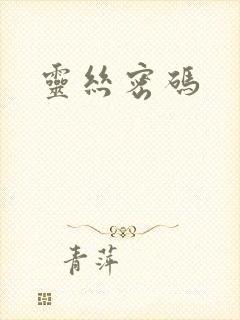 靈絲密碼
青萍